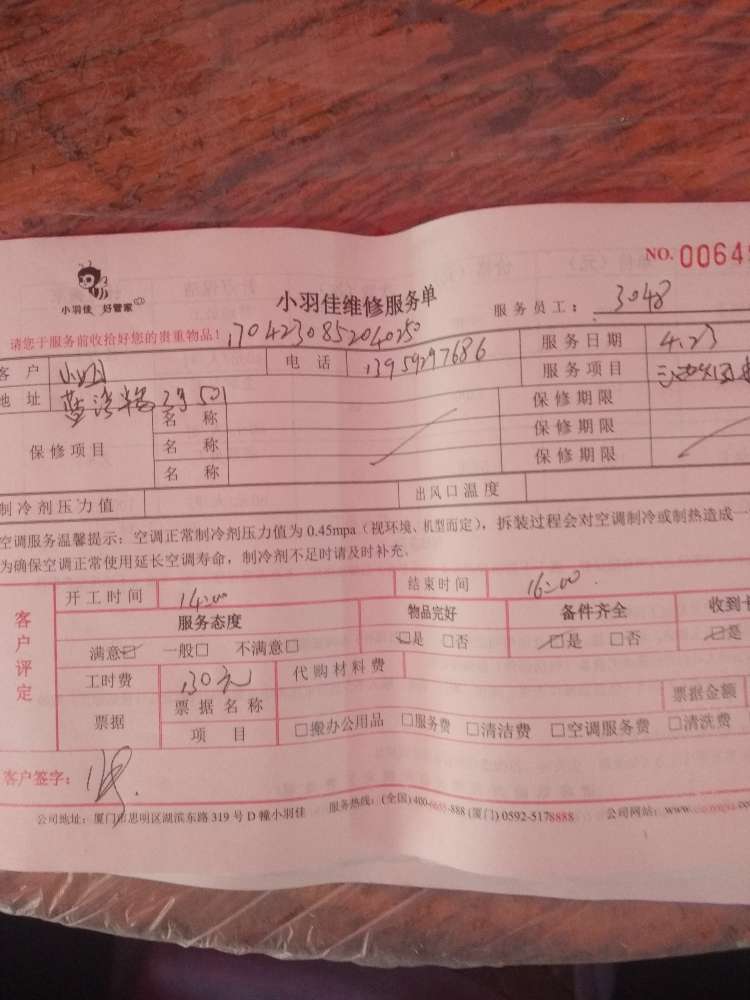 NO. 0064
小羽佳 好管家
小羽佳维修服务单
服务员工: 3048
请您于服务前收拾好您的贵重物品! 1304230852040250
客户 小姐 电话 13959297686 服务日期 4.23
地址 2号501 服务项目
保修项目 名称 保修期限
名称 保修期限
名称 保修期限
制冷剂压力值 出风口温度
空调服务温馨提示: 空调正常制冷剂压力值为 0.45mpa (视环境、机型而定), 拆装过程会对空调制冷或制热造成一
为确保空调正常使用延长空调寿命, 制冷剂不足时请及时补充.
客户评定
开工时间 14:00 结束时间 16:00.
服务态度 物品完好 备件齐全 收到
满意☑ 一般□ 不满意□ ☑是 □否 ☑是 □否 ☑是
工时费 130元 代购材料费
票据 票据名称 票据金额
项目 □搬办公用品 □服务费 □清洁费 □空调服务费 □清洗费
客户签字:
公司地址: 厦门市思明区湖滨东路 319 号 D 幢小羽佳 服务热线: (全国) 400-6655-888 (厦门) 0592-5178888 公司网站: www.